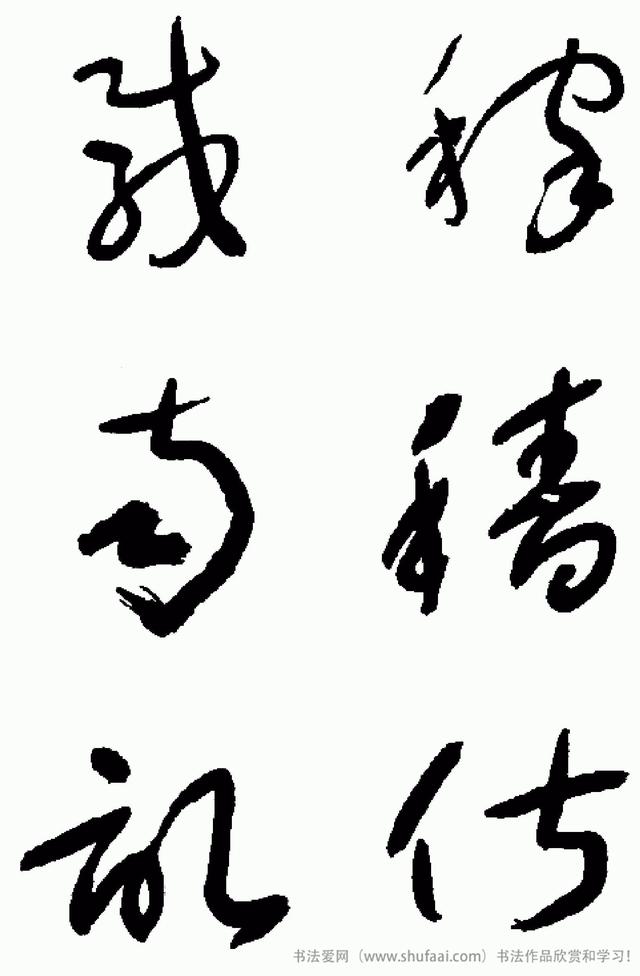 稼穡俶
載南畝
书法爱网（www.shufaai.com）书法作品欣赏和学习！